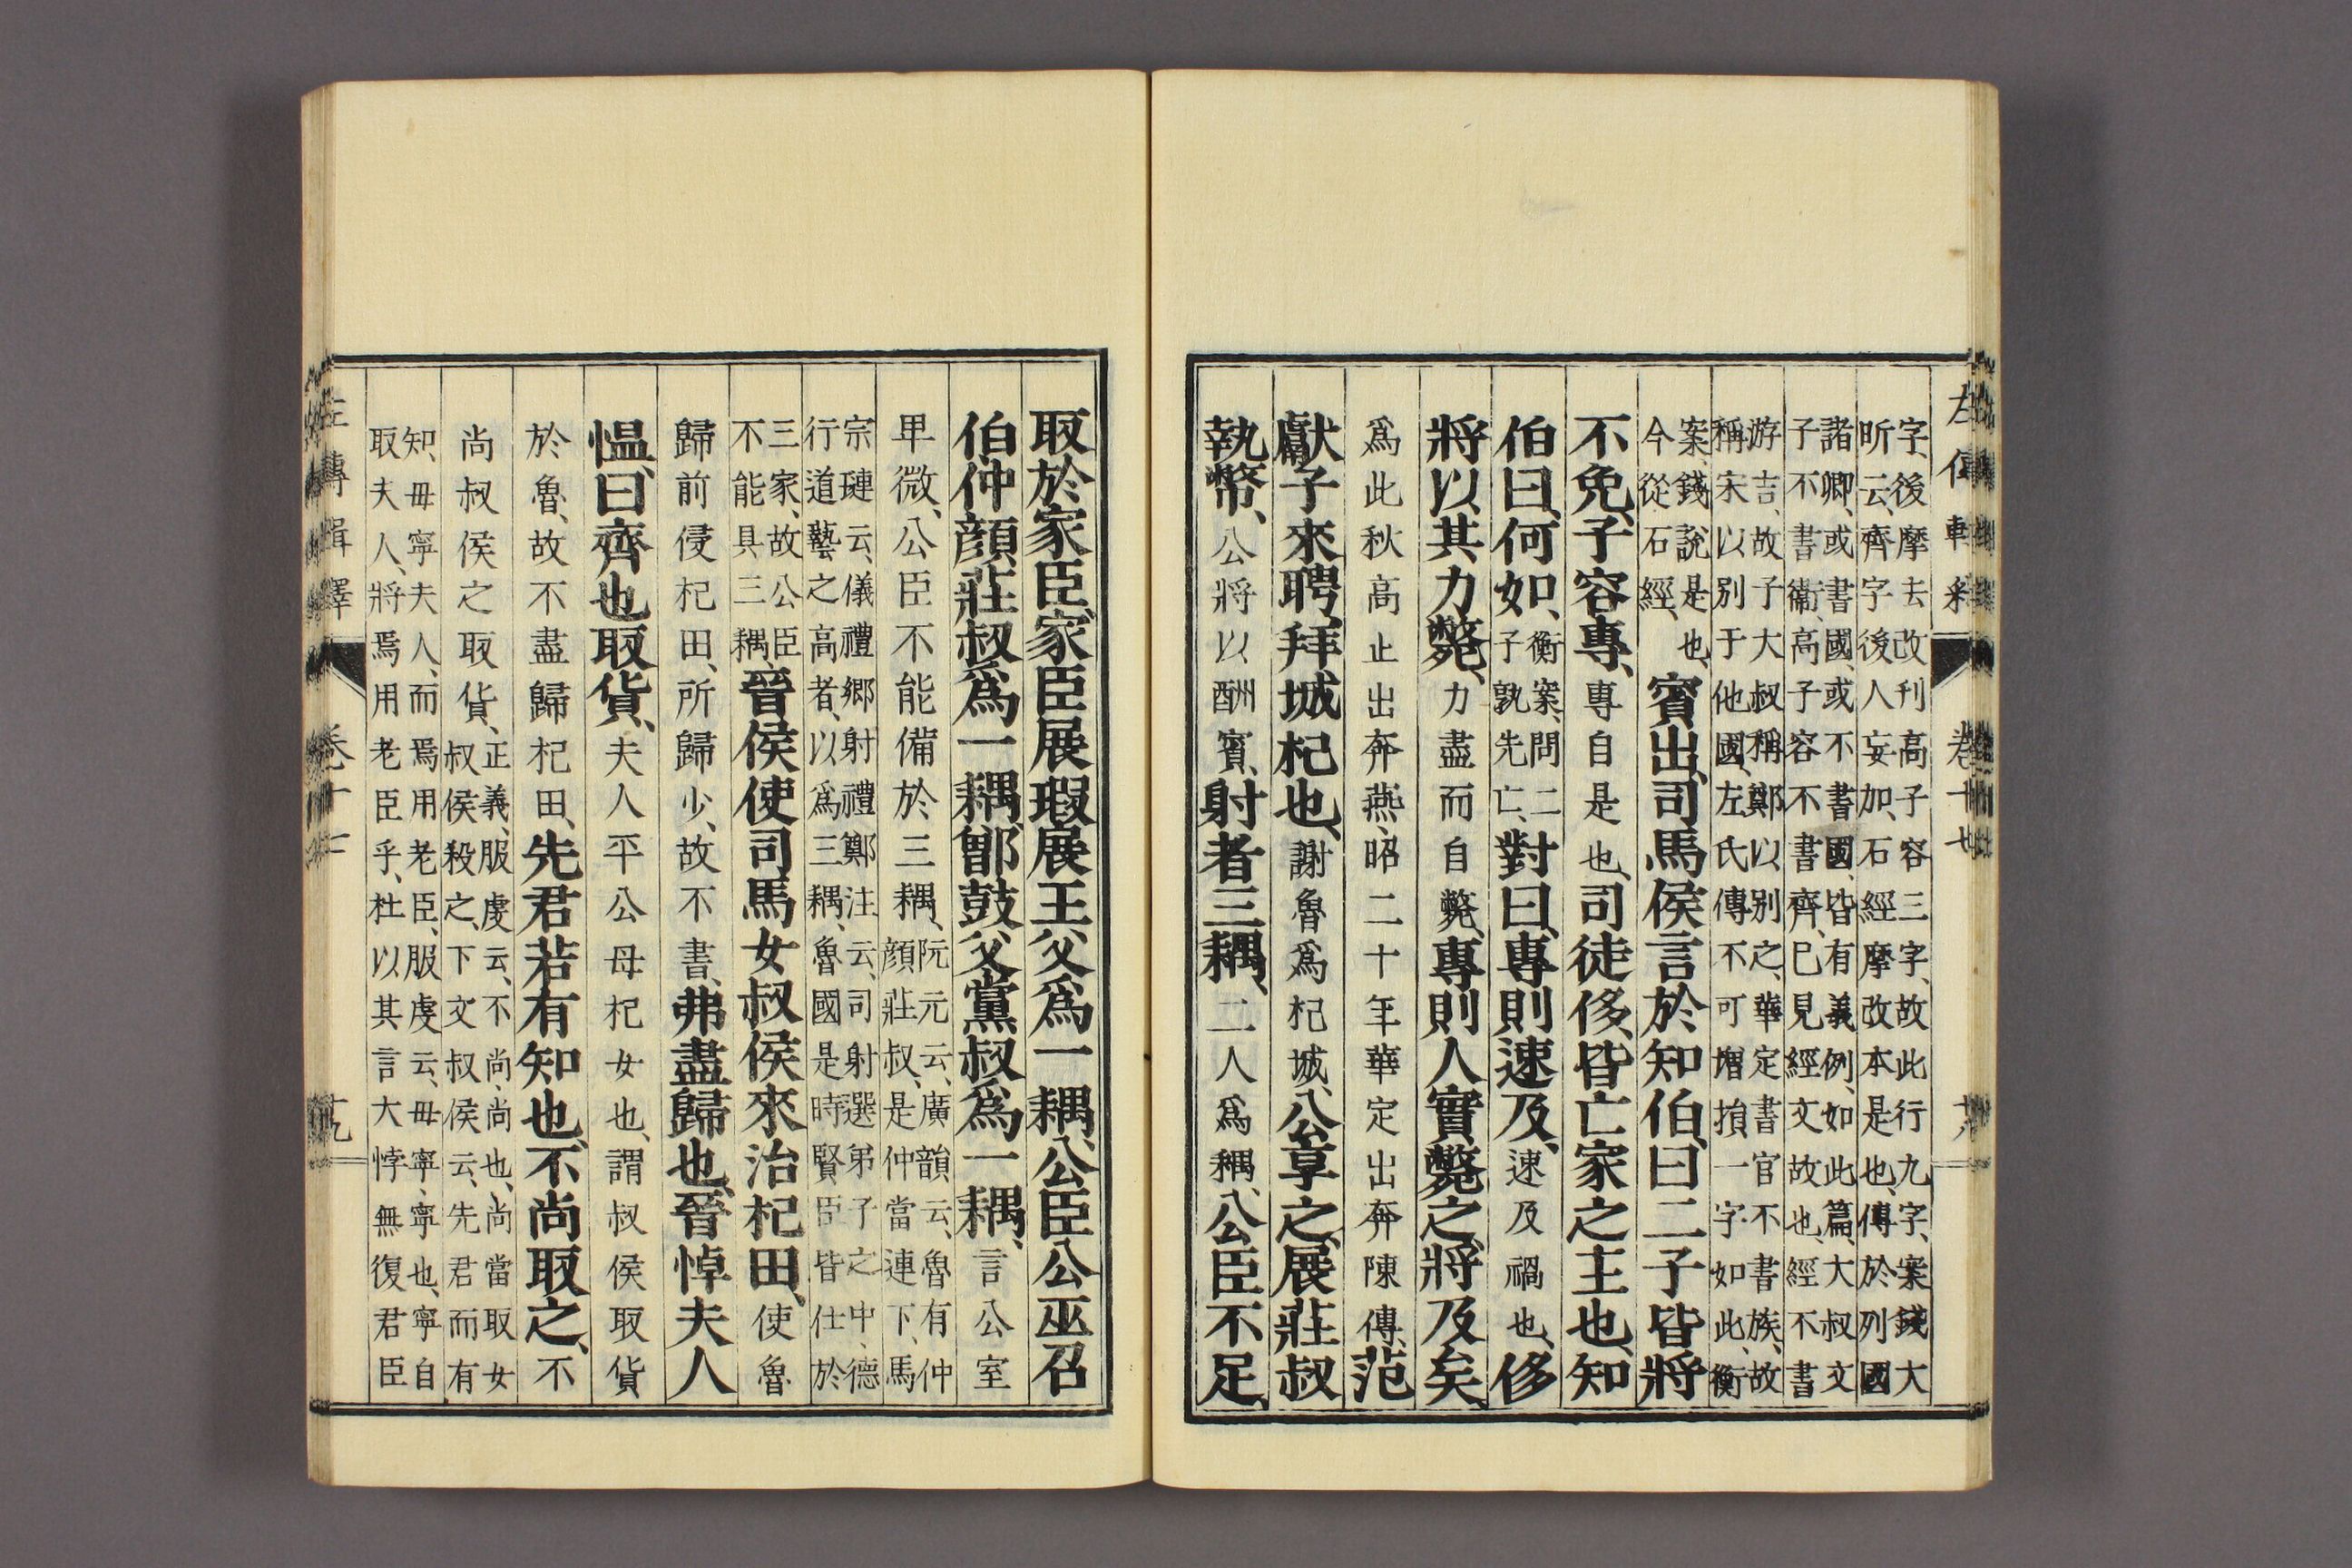 左傳輯釋 卷十七 十八
字、後摩去改刊高子容三字、故此行九字、案錢大
昕云、齊字後人妄加、石經摩改本是也、傳於列國
諸卿、或書國、或不書國、皆有義例、如此篇、大叔文
子不書衞、高子容不書齊、已見經文故也、經不書
游吉、故子大叔稱鄭以別之、華定書官不書族、故
稱宋以別于他國、左氏傳不可增損一字如此、衡
案、錢說是也、
今從石經、
賓出、司馬侯言於知伯、曰二子皆將
不免、子容專、專自是也、司徒侈、皆亡家之主也、知
伯曰、何如、衡案、問二子孰先亡、對曰、專則速及、速及禍也、侈
將以其力斃、力盡而自斃、專則人實斃之、將及矣、
爲此秋高止出奔燕、昭二十年華定出奔陳傳、范
獻子來聘、拜城杞也、謝魯爲杞城、公享之、展莊叔
執幣、公將以酬賓、射者三耦、二人爲耦、公臣不足、
取於家臣、家臣展瑕展王父爲一耦、公臣公巫召
伯仲顏莊叔爲一耦、鄫鼓父黨叔爲一耦、言公室
卑微、公臣不能備於三耦、阮元云、廣韻云、魯有仲
顏莊叔、是仲當連下、馬
宗璉云、儀禮鄉射禮鄭注云、司射選弟子之中、德
行道藝之高者、以爲三耦、魯國是時賢臣皆仕於
三家、故公臣
不能具三耦、
晉侯使司馬女叔侯來治杞田、使魯
歸前侵杞田、所歸少、故不書、弗盡歸也、晉悼夫人
慍、曰齊也取貨、夫人平公母杞女也、謂叔侯取貨
於魯、故不盡歸杞田、先君若有知也、不尚取之、不
尚叔侯之取貨、正義、服虔云、不尚、尚也、尚當取女
叔侯殺之、下文叔侯云、先君而有
知、毋寧夫人、而焉用老臣、服虔云、毋寧、寧也、寧自
取夫人、將焉用老臣乎、杜以其言大悖無復君臣
左傳輯釋 卷十七 十九